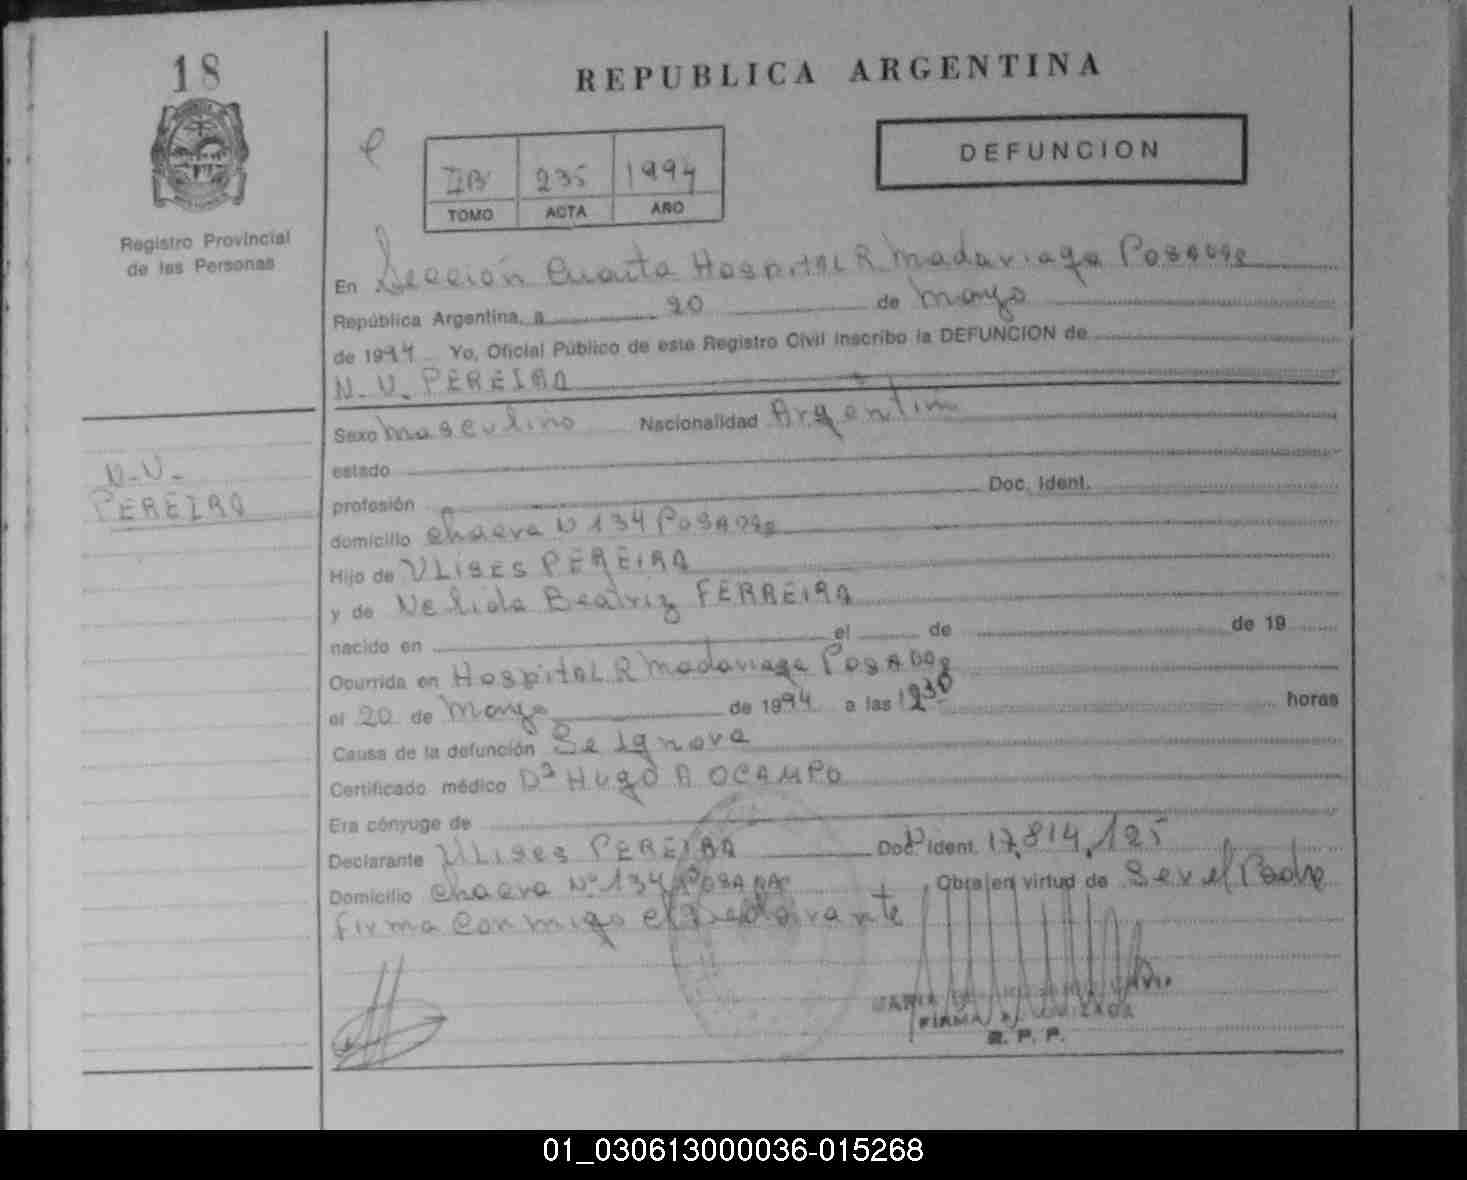 18
REPUBLICA ARGENTINA
DEFUNCION
235 1994
TOMO ACTA AÑO
Registro Provincial
de las Personas
En Sección Cuarta Hospital R Madariaga Posadas
República Argentina, a 20 de Mayo
de 1994 Yo, Oficial Público de este Registro Civil inscribo la DEFUNCION de
N. N. PEREIRA
Sexo Masculino Nacionalidad Argentin
estado
N. N.
PEREIRA
profesión Doc. Ident.
domicilio chacra N 134 Posadas
Hijo de ULISES PEREIRA
y de Nelida Beatriz FERREIRA
nacido en el de de 19
Ocurrida en Hospital R Madariaga Posadas
el 20 de Mayo de 1994 a las horas
Causa de la defunción Se Ignora
Certificado médico Dr Hugo A OCAMPO
Era cónyuge de
Declarante Ulises PEREIRA Doc. Ident. 17,814,125
Domicilio chacra Nº 134 POSADAS Obra en virtud de Ser el Padre
firma conmigo el Declarante
R. P. P.
01_030613000036-015268